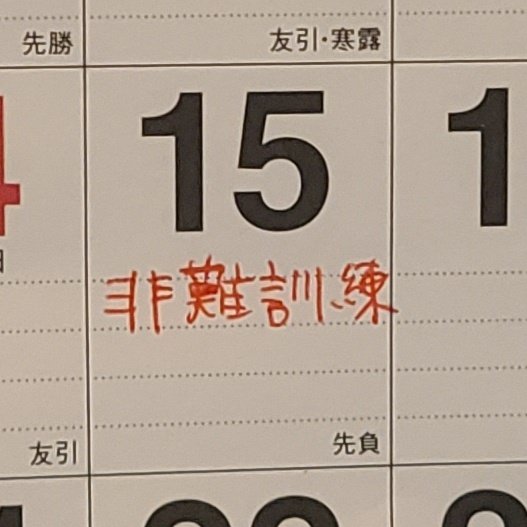 先勝
友引・寒露
4
15
1
日
非難訓練
友引
先負